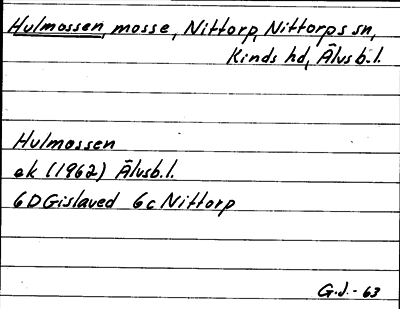 Hulmossen, mosse, Nittorp, Nittorps sn,
Kinds hd, Älvsb.l.
Hulmossen
ek (1962) Älvsb.l.
6D Gislaved 6c Nittorp
G.J.-63